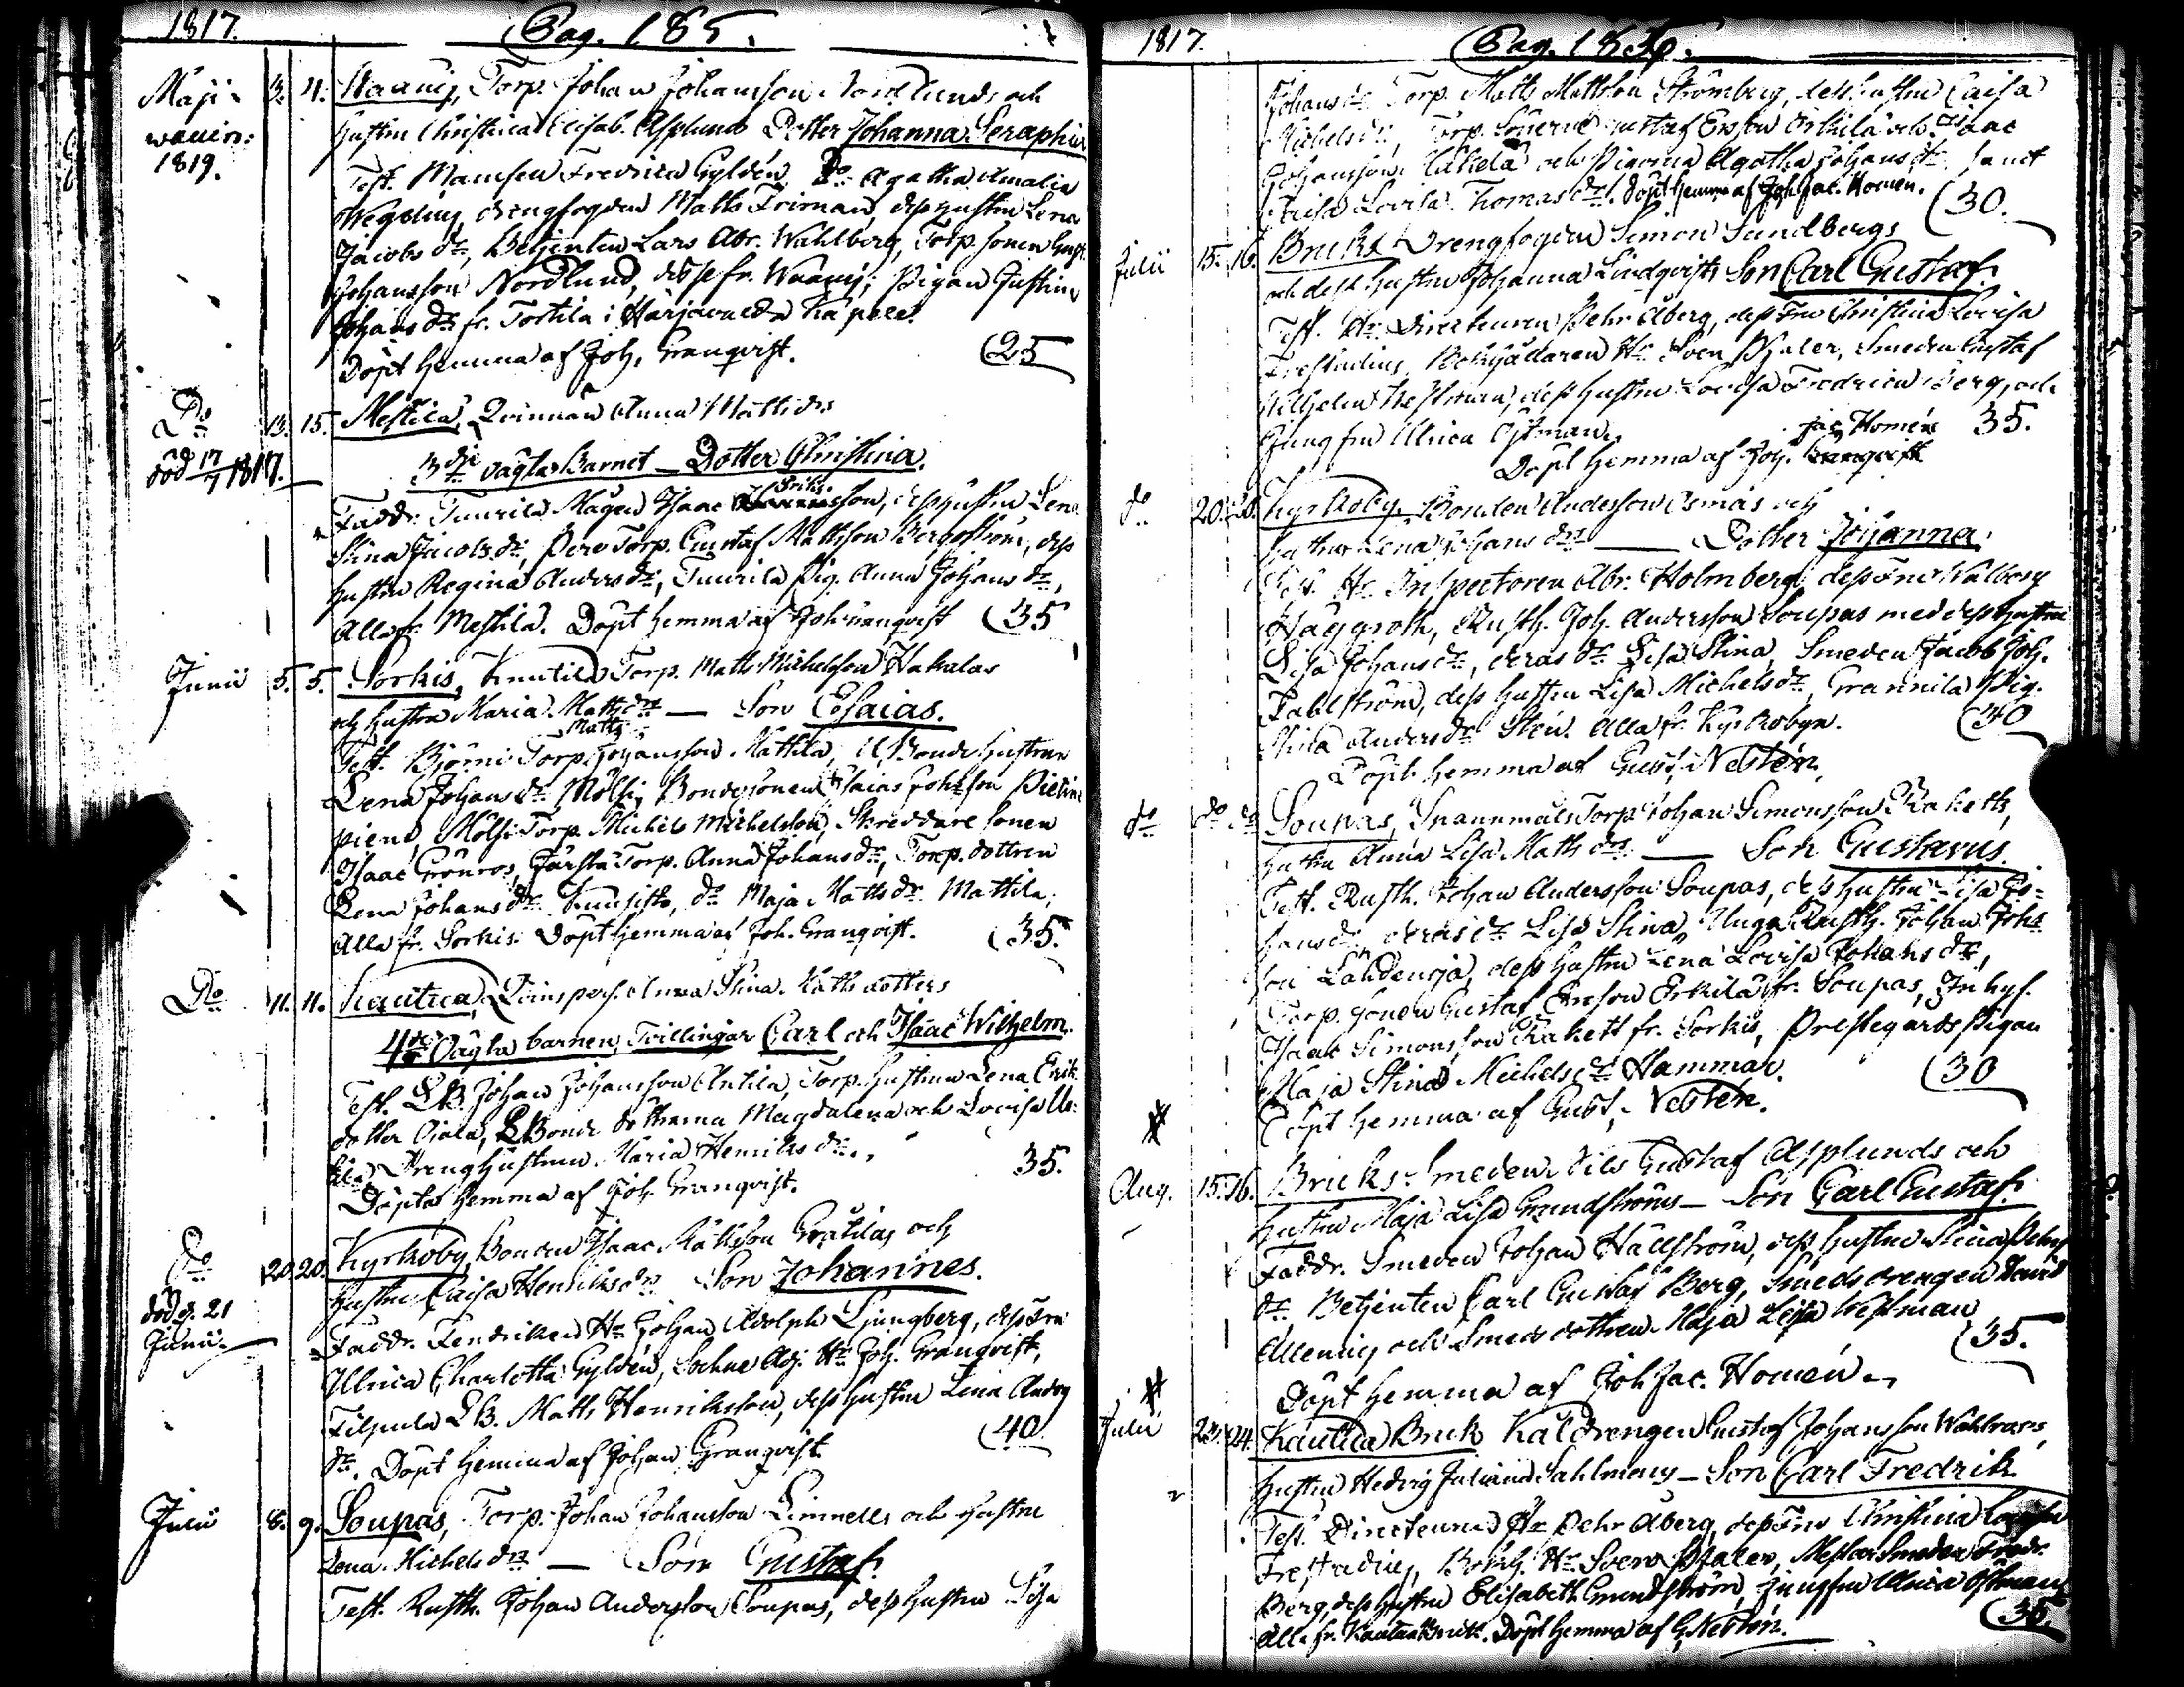 1817. Pag. 185.
Maji 13. 14. Torp. Johan Johansson Nordlunds och
waccin: Hustru Christina Elisab. Asplunds Dotter Johanna Seraphin
1819. Test. Mamsen Fredrica Gyldén, Do Agatha Amalia
Wegelius, drengfogden Matts Friman, dess hustru Lena
Jacobs dr, Betjenten Lars Abr. Wahlberg, Torp. sonen
Johansson Nordlund, alla fr. Pigan Justina
Johans dr fr. Torttila i Harjawalda Kapell.
Döpt hemma af Joh. Granqvist. (25
Do 13. 15. Mestilä, Qvinnan Anna Matts drs
död 17/7 1817. 3dje oägta Barnet — Dotter Christina.
Faddr. Tuurila Mågen Isaac Eriksson, dess hustru Lena
Stina Jacobs dr, Pere Torp. Gustaf Mattsson Bergström, dess
hustru Regina Anders dr, Tuurila Pig. Anna Johans dr,
Alla fr. Mestilä. Döpt hemma af Joh. Granqvist (35
Junii 5. 5. Sorkis, Knutila Torp. Matts Michelsson Hakalas
och hustru Maria Matts drs — Son Esaias.
Matts
Test. Björni Torp. Johansson Mattila, Bonde hustrun
Lena Johans dr Mölsi, Bondesonen Esaias Johsson
Mölsi Torp. Michel Michelsson, Skreddare sonen
Isaac Grönros, Torp. Anna Johans dr, Torp. dottren
Lena Johans dr do Maja Matts dr Mattila,
Alla fr. Sorkis. Döpt hemma af Joh. Granqvist. (35.
Do 11. 11. Kautua, Qvinspers. Anna Stina Matts dotters
4de Oägta barnen, Tvillingar Carl och Isaac Wilhelm.
Test. LB. Johan Johansson Antila, Torp. hustrun Lena Erik
dotter Ojala, LBonde döttrarna Magdalena och Lovisa
Drenghustrun Maria Henriks dr. 35.
Döpta hemma af Joh. Granqvist.
Do 20. 20. Kyrkoby, Bonden Isaac Mattsson och
död d. 21 hustru Caisa Henriks drs Son Johannes.
Junii. Faddr. Fendriken Hr Johan Adolph Ljungberg, dess Fru
Ullrica Charlotta Gyldén, Sockne Adj. Hr Joh. Granqvist,
Filpula LB. Matts Henriksson, dess hustru Lena Anders
dr. Döpt hemma af Johan Granqvist. (40
Julii 8. 9. Soupas, Torp. Johan Johansson Linnells och hustru
Lena Michels drs — Son Gustaf.
Test. Rusth. Johan Andersson Soupas, dess hustru Lisa
1817. Pag. 186.
Johans dr Torp. Matts Mattsson Strömberg, dess hustru Caisa
Michels dr, Torp. Sönerne Gustaf Ersson Erkilä och Isaac
Johansson och Pigorna Agatha Johans dr, samt
Lovisa Thomas dr. Döpt hemma af Joh. Jac. Homén. (30.
Julii 15. 16. Bruks Drengfogden Simon Sundbergs
och dess hustru Johanna Lindqvists Son Carl Gustaf.
Test. Hr Directeuren Pehr Åberg, dess Fru Christina Lovisa
Frestadius, Bokhållaren Hr Sven Pfaler, Smeden Gustaf
Wilhelm Westman, dess hustru Lovisa Fredrica Berg, och
Jungfru Ulrica Östman. Jac. Homén 35.
Döpt hemma af Joh. Granqvist
do 20. 20. Kyrkoby, Bonden Andersson Esmas och
hustru Lena Johans drs — Dotter Johanna.
Test. Hr Inspectoren Abr. Holmberg, dess Fru Walborg
Häggroth, Rusth. Joh. Andersson Soupas med dess hustru
Lisa Johans dr, deras dr Lisa Stina, Smeden Jacob Joh.
Fahlström, dess hustru Lisa Michels dr, Grannila Pig.
Stina Anders dr Sten. Alla fr. Kyrkobyn. (40
Döpt hemma af Gust. Neostén.
do do do Soupas, Torp. Johan Simonsson Rakets,
hustru Anna Lisa Matts drs — Son Gustavus.
Test. Rusth. Johan Andersson Soupas, dess hustru Lisa Jo-
hans dr, deras dr Lisa Stina, Unga Rusth. Johan Johs
son Lähdenoja, dess hustru Lena Lovisa Johans dr,
Torp. Sonen Gustaf Ersson Erkilä fr. Soupas, Inhys.
Isaac Simonsson Rakett fr. Sorkis, Prestegårds Pigan
Maja Stina Michels dr Hammar. (30
Döpt hemma af Gust. Neostén.
#
Aug. 15. 16. Bruks Smeden Nils Gustaf Asplunds och
hustru Maja Lisa Grundströms — Son Carl Gustaf.
Faddr. Smeden Johan Hällström, dess hustru Stina Pehrs
dr, Betjenten Carl Gustaf Berg, Smedsdrengen David
Allenius och Smeds dottren Maja Lisa Westman (35.
Döpt hemma af Joh Jac. Homén.
#
Julii 23. 24. Kautua Bruk Kåldrengen Gustaf Johansson Wahlroos,
hustru Hedvig Juliana Sahlmans — Son Carl Fredrik
Test. Directeuren Hr Pehr Åberg, dess Fru Christina Lovisa
Frestadius, Bokh. Hr Sven Pfaler, Mästar Smeden Fredr.
Berg, dess hustru Elisabeth Grundström, Jungfru Ulrica Östman
Alla fr. Kautua Bruk. Döpt hemma af G. Neostén. (35.